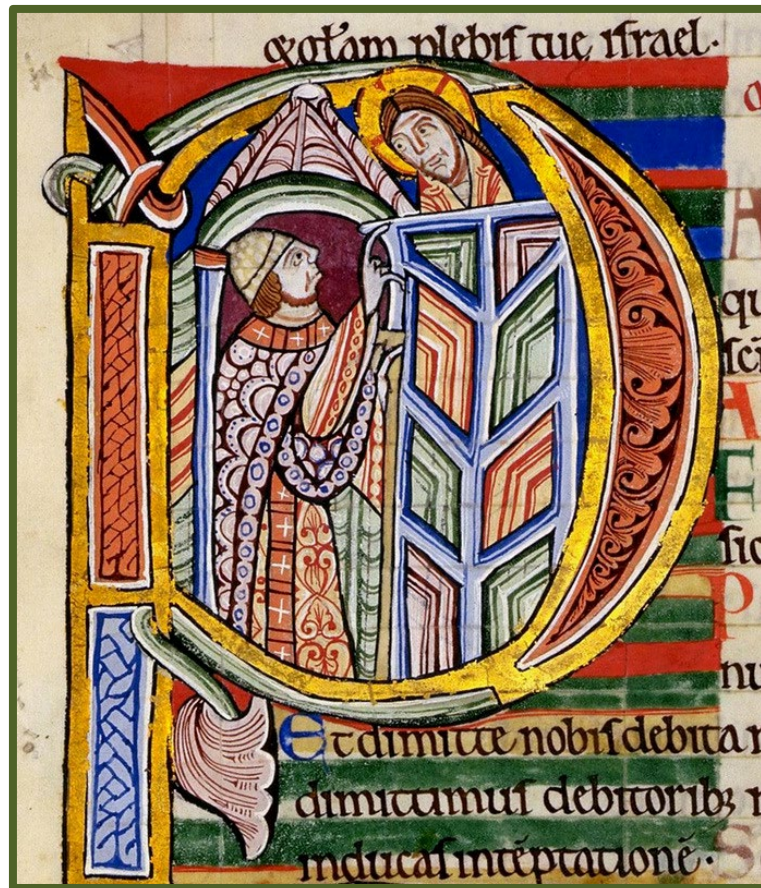 & gl̄am plebiſ tuę iſrael·
P
A
qu
ſcī
A
F
ſic
P
nu
Et dimitte nobiſ debita
dimittimuſ debitoribꝫ
inducaſ intēptationē· S